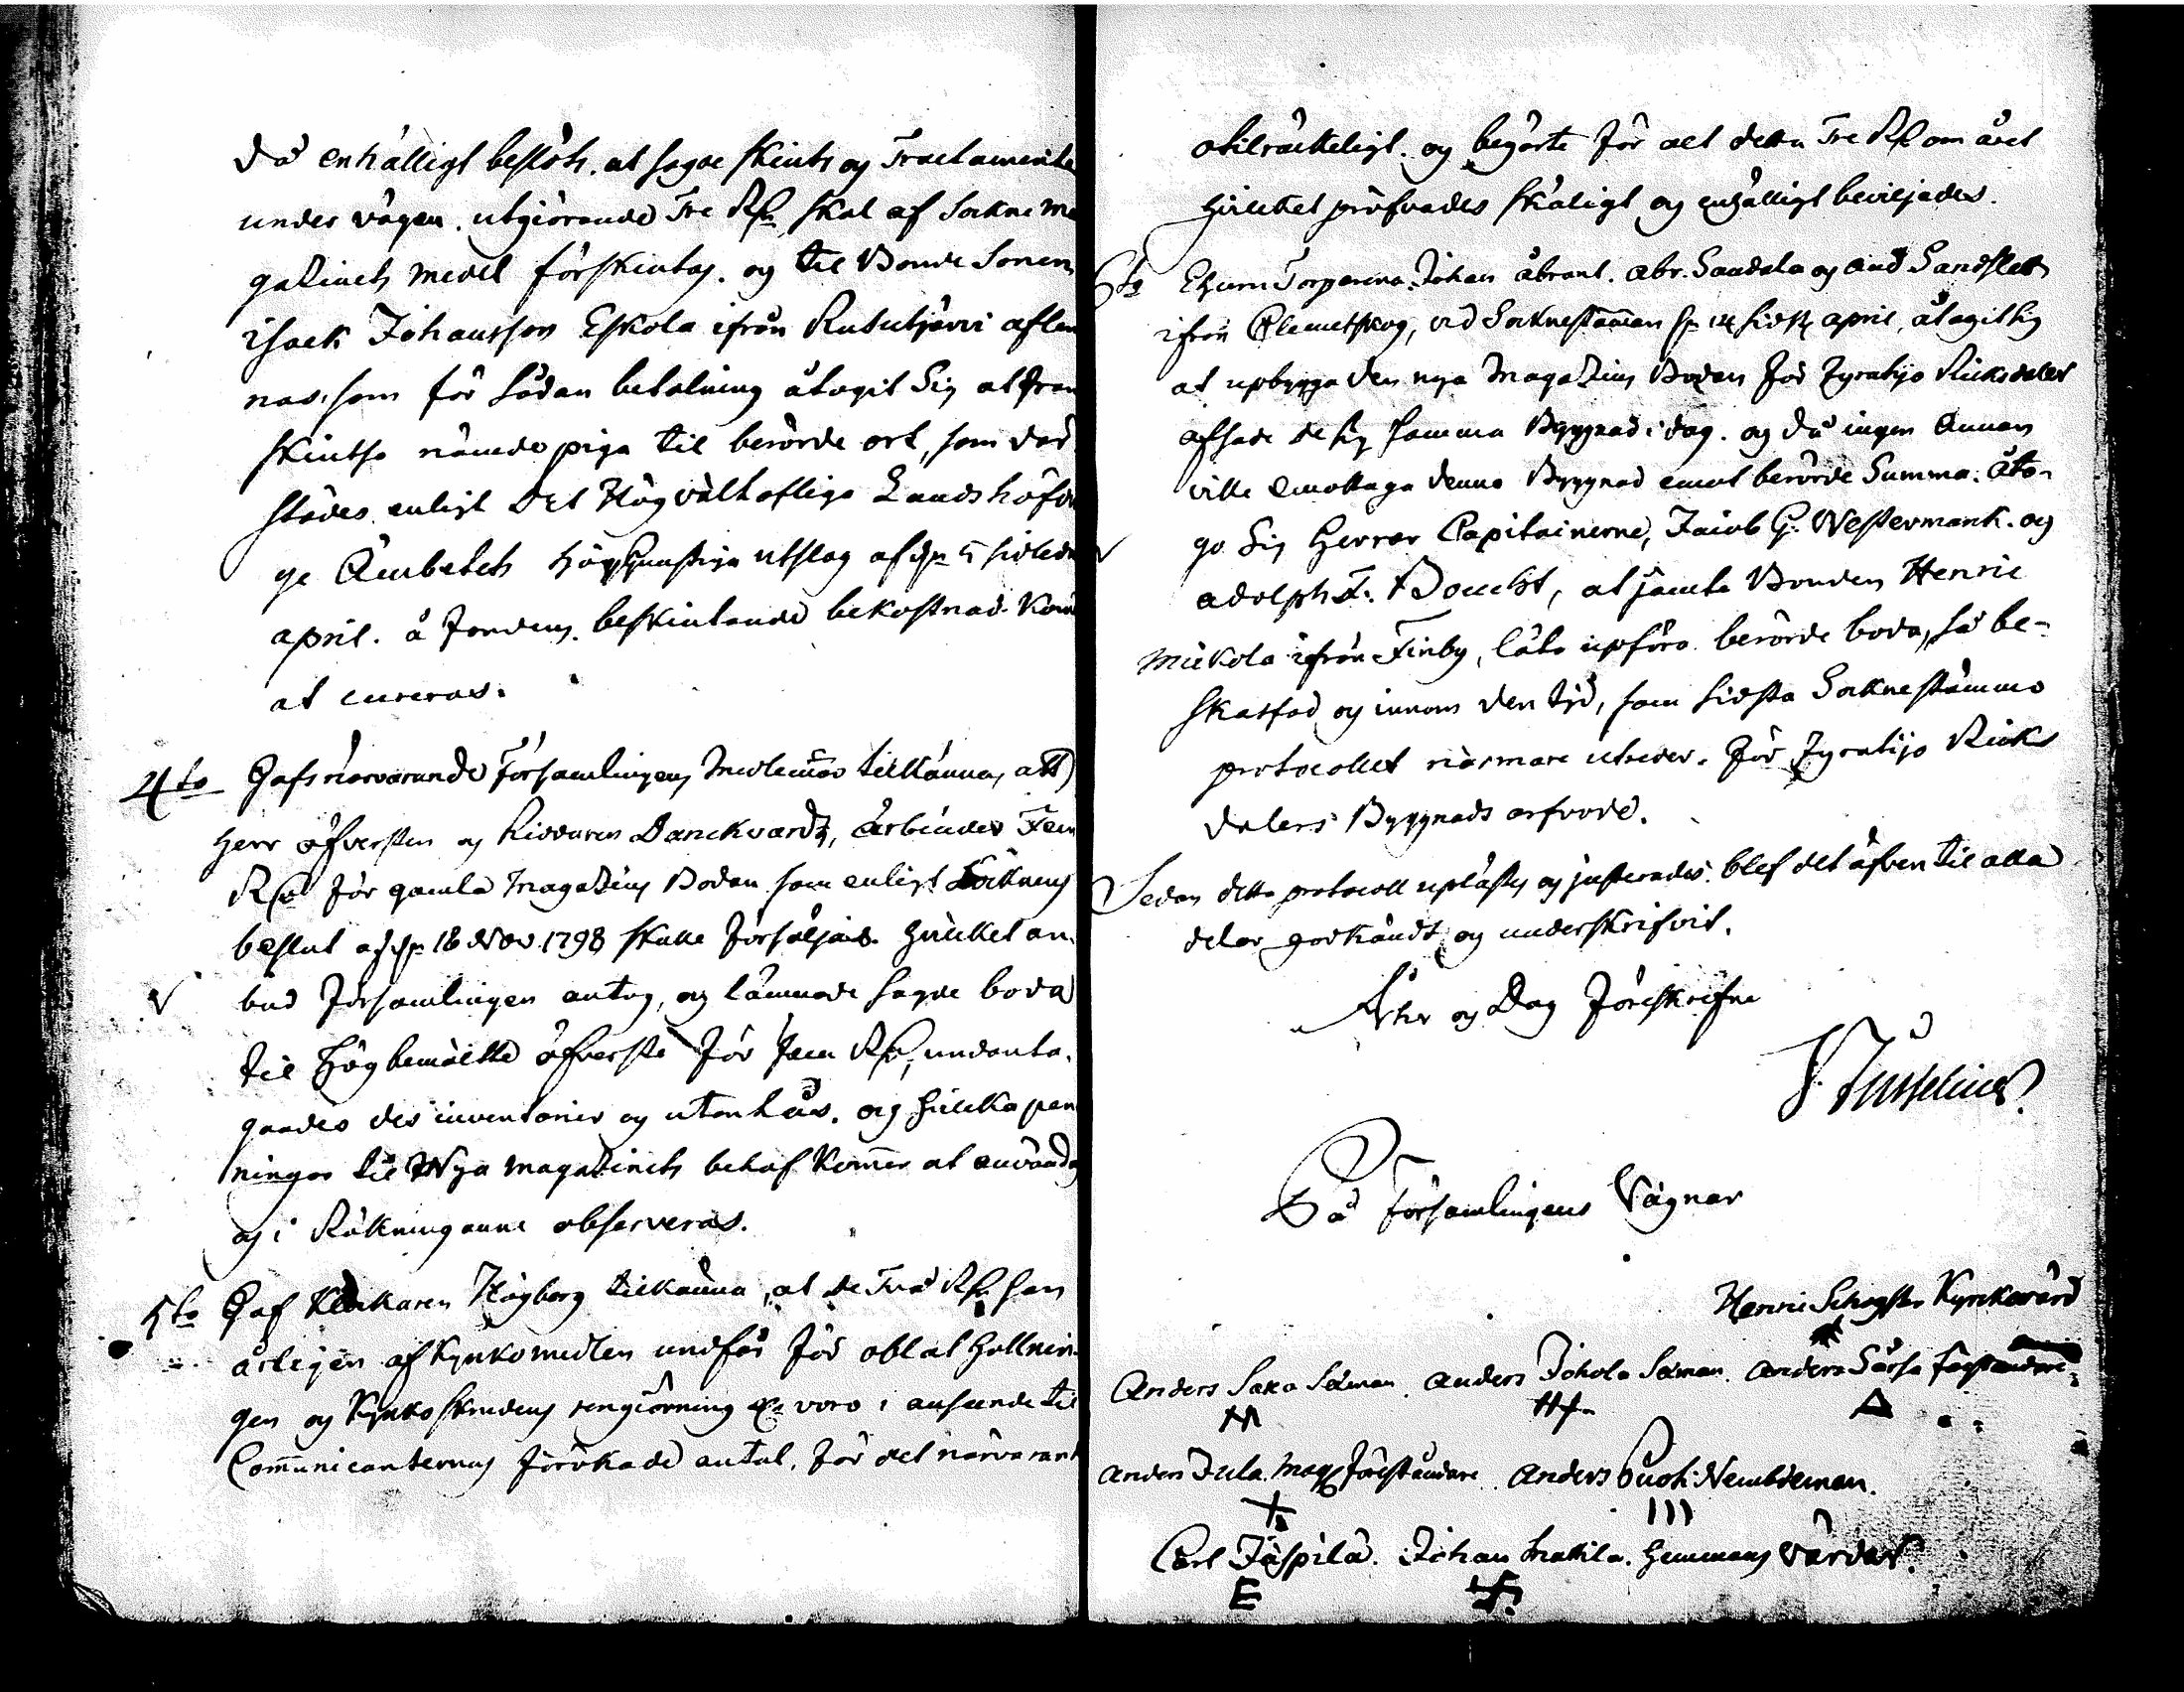 Då enhälligt beslöts, at sagde skiuts og Tractamente
under vägen, utgiörande Tre Rdr skal af Sokne Ma
gazinets medel förskiutas, og til Bonde Sonen
Isack Johansson Eskola ifrån Rutukärvi aflem
nas, som för sådan betalning åtagit Sig at fram
skiutsa nämde piga til berörde ort, som där
städes enligt Det Högvälbofliga Landshöfdin
ge Ämbetets höggunstiga utslag af d. 5 sidledne
april. å Fondens beskiutande bekostnad kom̄er
at cureras.
4to Gafs närvarande Församlingens Medlem̄ar tilkänna, att
Herr öfversten og Riddaren Danckvardt, ärbiuder Fem
Rdr för gamla Magazins Bodan som enligt Soknens
beslut af d. 18 Nov. 1798 skulle försäljas. Hvilket an-
bud Församlingen antog, og lämnade sagde boda
til Högbemälte öfverste för fem Rdr, undanta-
gandes des inventarier og utanlås, og hvilka pen
ningar til Nya magazinets behof kom̄er at användas
og i Räkningarne observeras.
5to Gaf Klåckaren Högberg tilkänna, at de Två Rdr han
årligen af Kyrkomedlen undfår för oblat hållnin-
gen og Kyrkoskrudens rengiörning &c voro i anseende til
Com̄unicanternas förökade antal, för det närvarande
otilräckeligt. og begärte för alt detta Tre Rdr om året
hvilcket pröfvades skäligt og enhälligt beviljades.
6to Ehuru Torparena Johan Åbrant, Abr. Sandala og And. Sandslätt
ifrån Clemetskog, vid Sokneståm̄an d. 14 sidstl. april, åtagit sig
at upbygga den nya Magazins Bodan för Fyratijo Riksdaler
afsade de sig samma Byggnad i dag. og då ingen Annan
ville emottaga denna Byggnad emot berörde Summa, åto-
go Sig Herrar Capitainerne, Jacob G. Westermark og
Adolph F. Boucht, at jämte Bonden Henric
Mickola ifrån Finby, låta upföra berörde boda, så be-
skaffad og innom den tid, som sidsta Sockneståmmo
protocollet närmare utviser. För Fyratijo Riks
dalers Byggnads arfvode.
Sedan detta protocoll uplästs og justerades, blef det äfven til alla
delar godkändt og underskrifvit.
Åhr og Dag föreskrifne
På Församlingens Vägnar
Henric Kyrkovärd
Anders Saka Sexman. Anders Johola Sexman. Anders Sårsa föreståndare
Anders Jula Mag. föreståndare. Anders Nembdeman.
Carl Jäspilä. Johan Mattila. Hemmans Värdar.
E